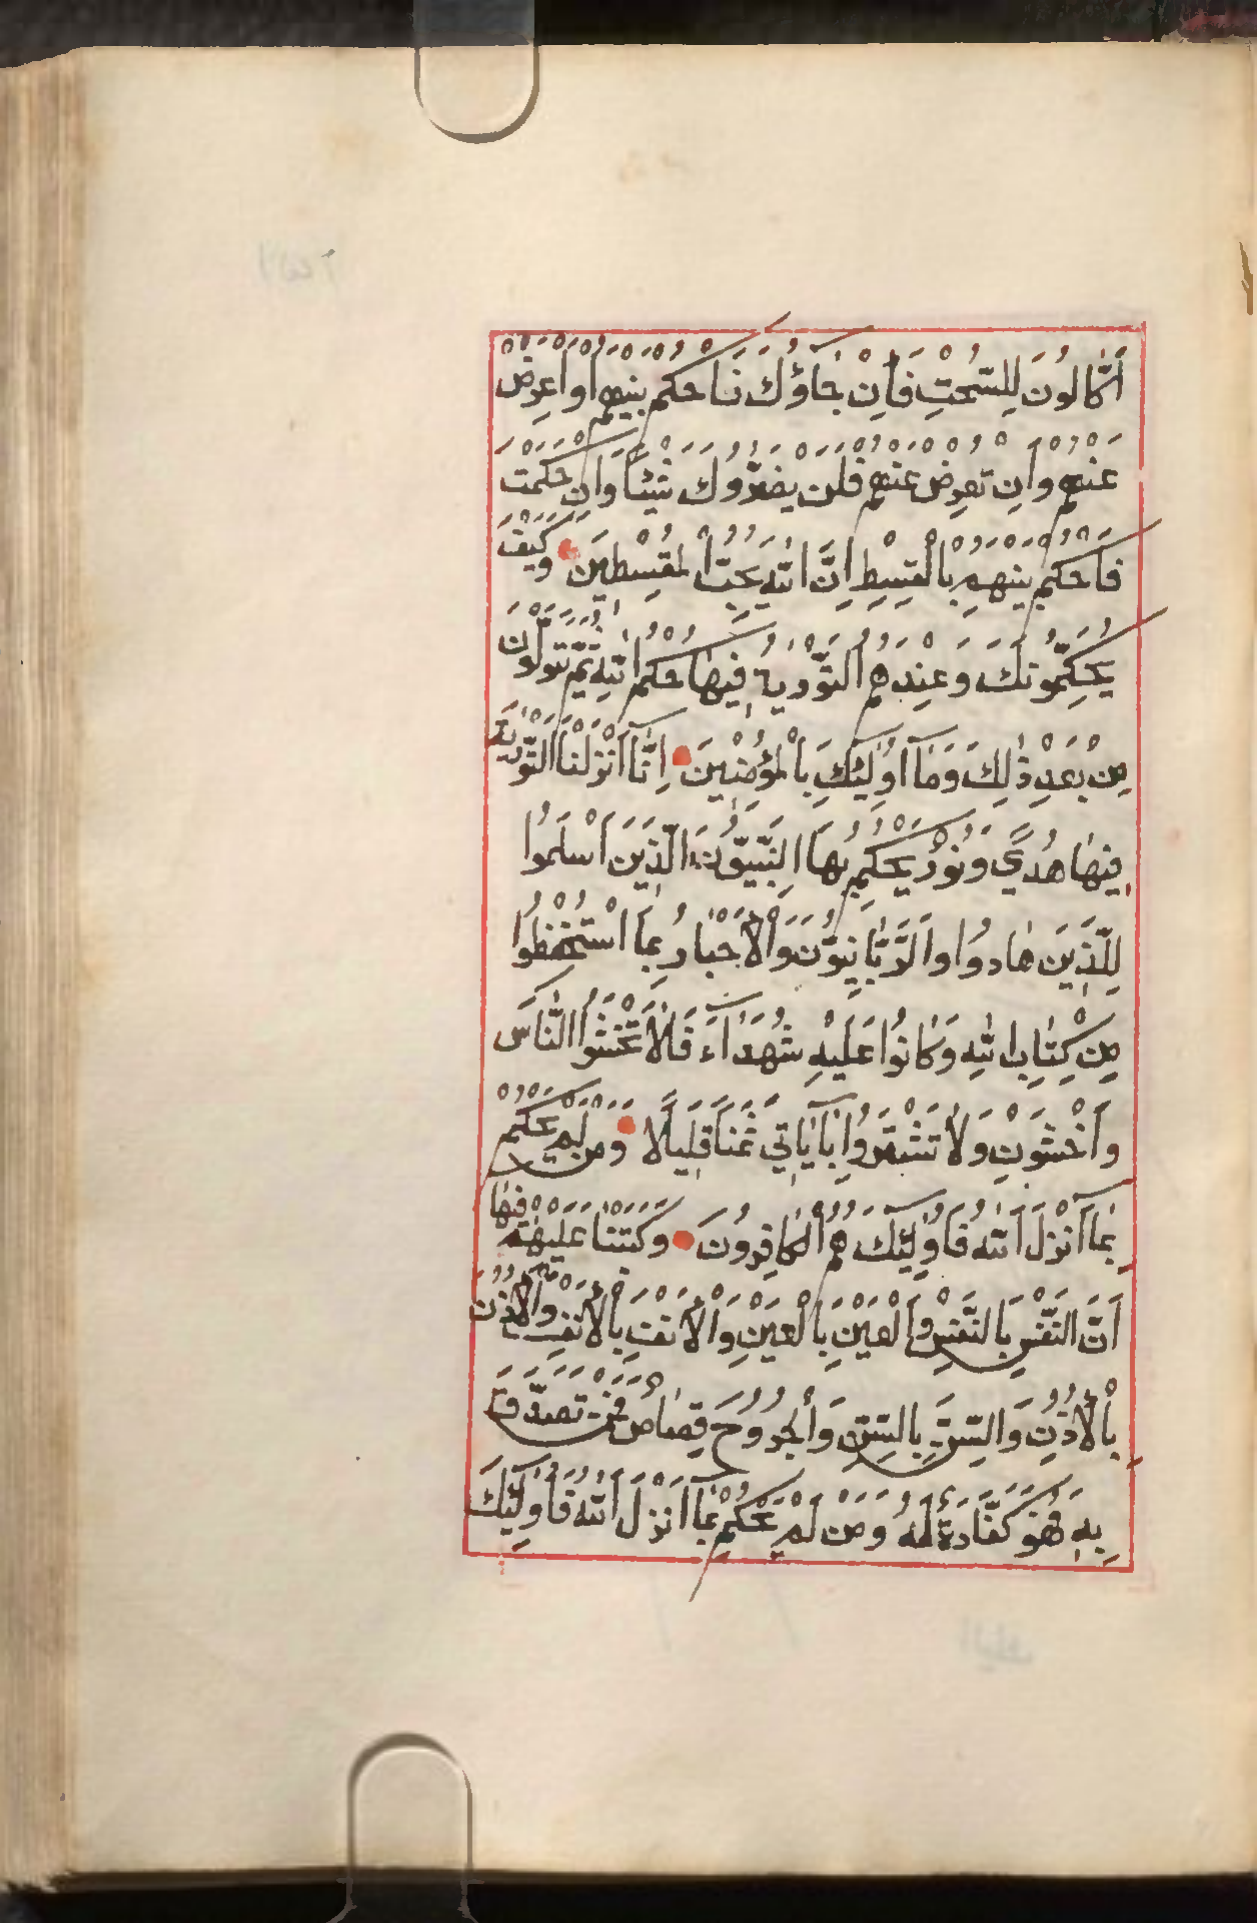 اَكَّالُونَ لِلسُّحْتِ فَاِنْ جَآؤُكَ فَاحْكُمْ بَيْنَهُمْ اَوْ اَعْرِضْ
عَنْهُمْ وَاِنْ تُعْرِضْ عَنْهُمْ فَلَنْ يَضُرُّوكَ شَيْئًا وَاِنْ حَكَمْتَ
فَاحْكُمْ بَيْنَهُمْ بِالْقِسْطِ اِنَّ اللّٰهَ يُحِبُّ الْمُقْسِطِينَ وَكَيْفَ
يُحَكِّمُونَكَ وَعِنْدَهُمُ التَّوْرٰيةُ فِيهَا حُكْمُ اللّٰهِ ثُمَّ يَتَوَلَّوْنَ
مِنْ بَعْدِ ذٰلِكَ وَمَآ اُولٰئِكَ بِالْمُؤْمِنِينَ اِنَّآ اَنْزَلْنَا التَّوْرٰيةَ
فِيهَا هُدًي وَنُورٌ يَحْكُمُ بِهَا النَّبِيُّونَ الَّذِينَ اَسْلَمُوا
لِلَّذِينَ هَادُوا وَالرَّبَّانِيُّونَ وَالْاَحْبَارُ بِمَا اسْتُحْفِظُوا
مِنْ كِتَابِ اللّٰهِ وَكَانُوا عَلَيْهِ شُهَدَآءَ فَلَا تَخْشَوُا النَّاسَ
وَاخْشَوْنِ وَلَا تَشْتَرُوا بِاٰيَاتِي ثَمَنًا قَلِيلًا وَمَنْ لَمْ يَحْكُمْ
بِمَآ اَنْزَلَ اللّٰهُ فَاُولٰئِكَ هُمُ الْكَافِرُونَ وَكَتَبْنَا عَلَيْهِمْ فِيهَا
اَنَّ النَّفْسَ بِالنَّفْسِ وَالْعَيْنَ بِالْعَيْنِ وَالْاَنْفَ بِالْاَنْفِ وَالْاُذُنَ
بِالْاُذُنِ وَالسِّنَّ بِالسِّنِّ وَالْجُرُوحَ قِصَاصٌ فَمَنْ تَصَدَّقَ
بِهِ فَهُوَ كَفَّارَةٌ لَهُ وَمَنْ لَمْ يَحْكُمْ بِمَآ اَنْزَلَ اللّٰهُ فَاُولٰئِكَ